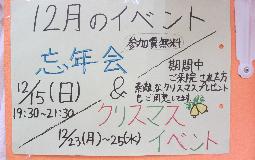 12月のイベント
参加費無料
忘年会
12/15(日)
19:30~21:30
&
期間中
ご来院された方
素敵なクリスマスプレゼント
をご用意してます
クリスマス
イベント
12/23(月)~25(水)